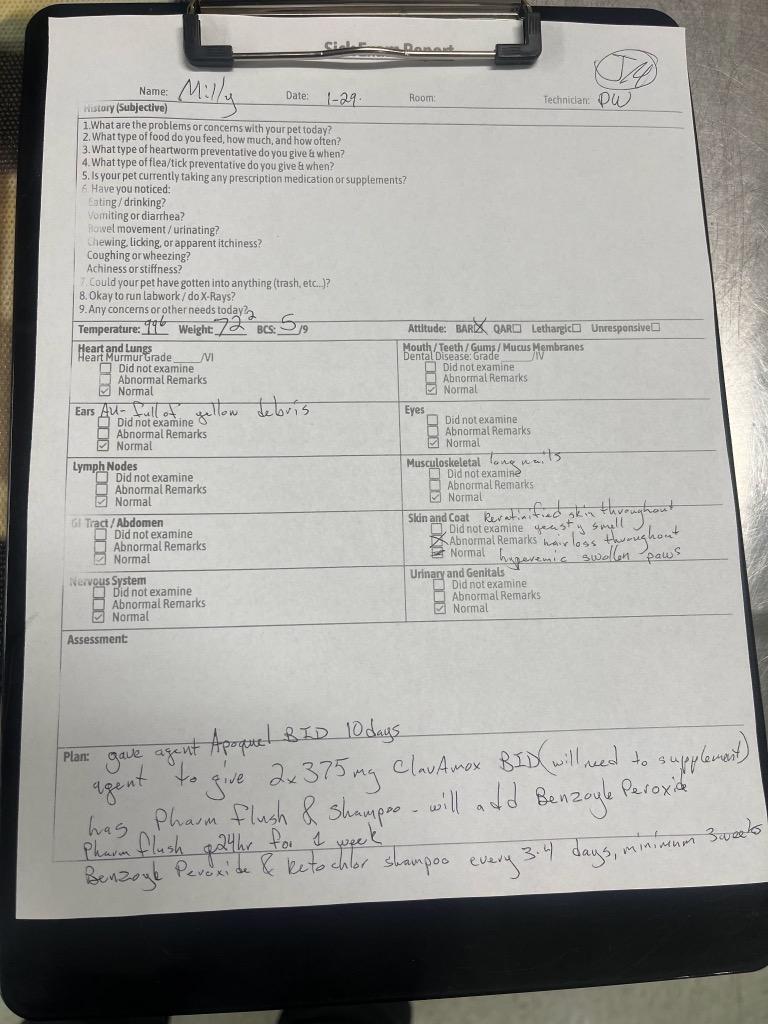 Sick Exam Report
J4
Name: Milly Date: 1-29. Room: Technician: DW
History (Subjective)
1.What are the problems or concerns with your pet today?
2. What type of food do you feed, how much, and how often?
3. What type of heartworm preventative do you give & when?
4. What type of flea/tick preventative do you give & when?
5. Is your pet currently taking any prescription medication or supplements?
6. Have you noticed:
Eating / drinking?
Vomiting or diarrhea?
Bowel movement / urinating?
Chewing, licking, or apparent itchiness?
Coughing or wheezing?
Achiness or stiffness?
7. Could your pet have gotten into anything (trash, etc...)?
8. Okay to run labwork / do X-Rays?
9. Any concerns or other needs today?
Temperature: 996 Weight: 72 2 BCS: 5/9 Attitude: BAR QAR Lethargic Unresponsive
Heart and Lungs
Heart Murmur Grade ____/VI
Did not examine
Abnormal Remarks
Normal
Mouth / Teeth / Gums / Mucus Membranes
Dental Disease: Grade ____/IV
Did not examine
Abnormal Remarks
Normal
Ears AU- full of yellow debris
Did not examine
Abnormal Remarks
Normal
Eyes
Did not examine
Abnormal Remarks
Normal
Lymph Nodes
Did not examine
Abnormal Remarks
Normal
Musculoskeletal long nails
Did not examine
Abnormal Remarks
Normal
GI Tract / Abdomen
Did not examine
Abnormal Remarks
Normal
Skin and Coat Keratinified skin throughout
Did not examine yeasty smell
Abnormal Remarks hairloss throughout
Normal hyperemic swollen paws
Nervous System
Did not examine
Abnormal Remarks
Normal
Urinary and Genitals
Did not examine
Abnormal Remarks
Normal
Assessment:
Plan: gave agent Apoquel BID 10 days
agent to give 2x375mg ClavAmox BID (will need to supplement)
has Pharm flush & Shampoo - will add Benzoyle Peroxide
Pharm flush q24hr for 1 week
Benzoyle Peroxide & Ketochlor shampoo every 3-4 days, minimum 3weeks